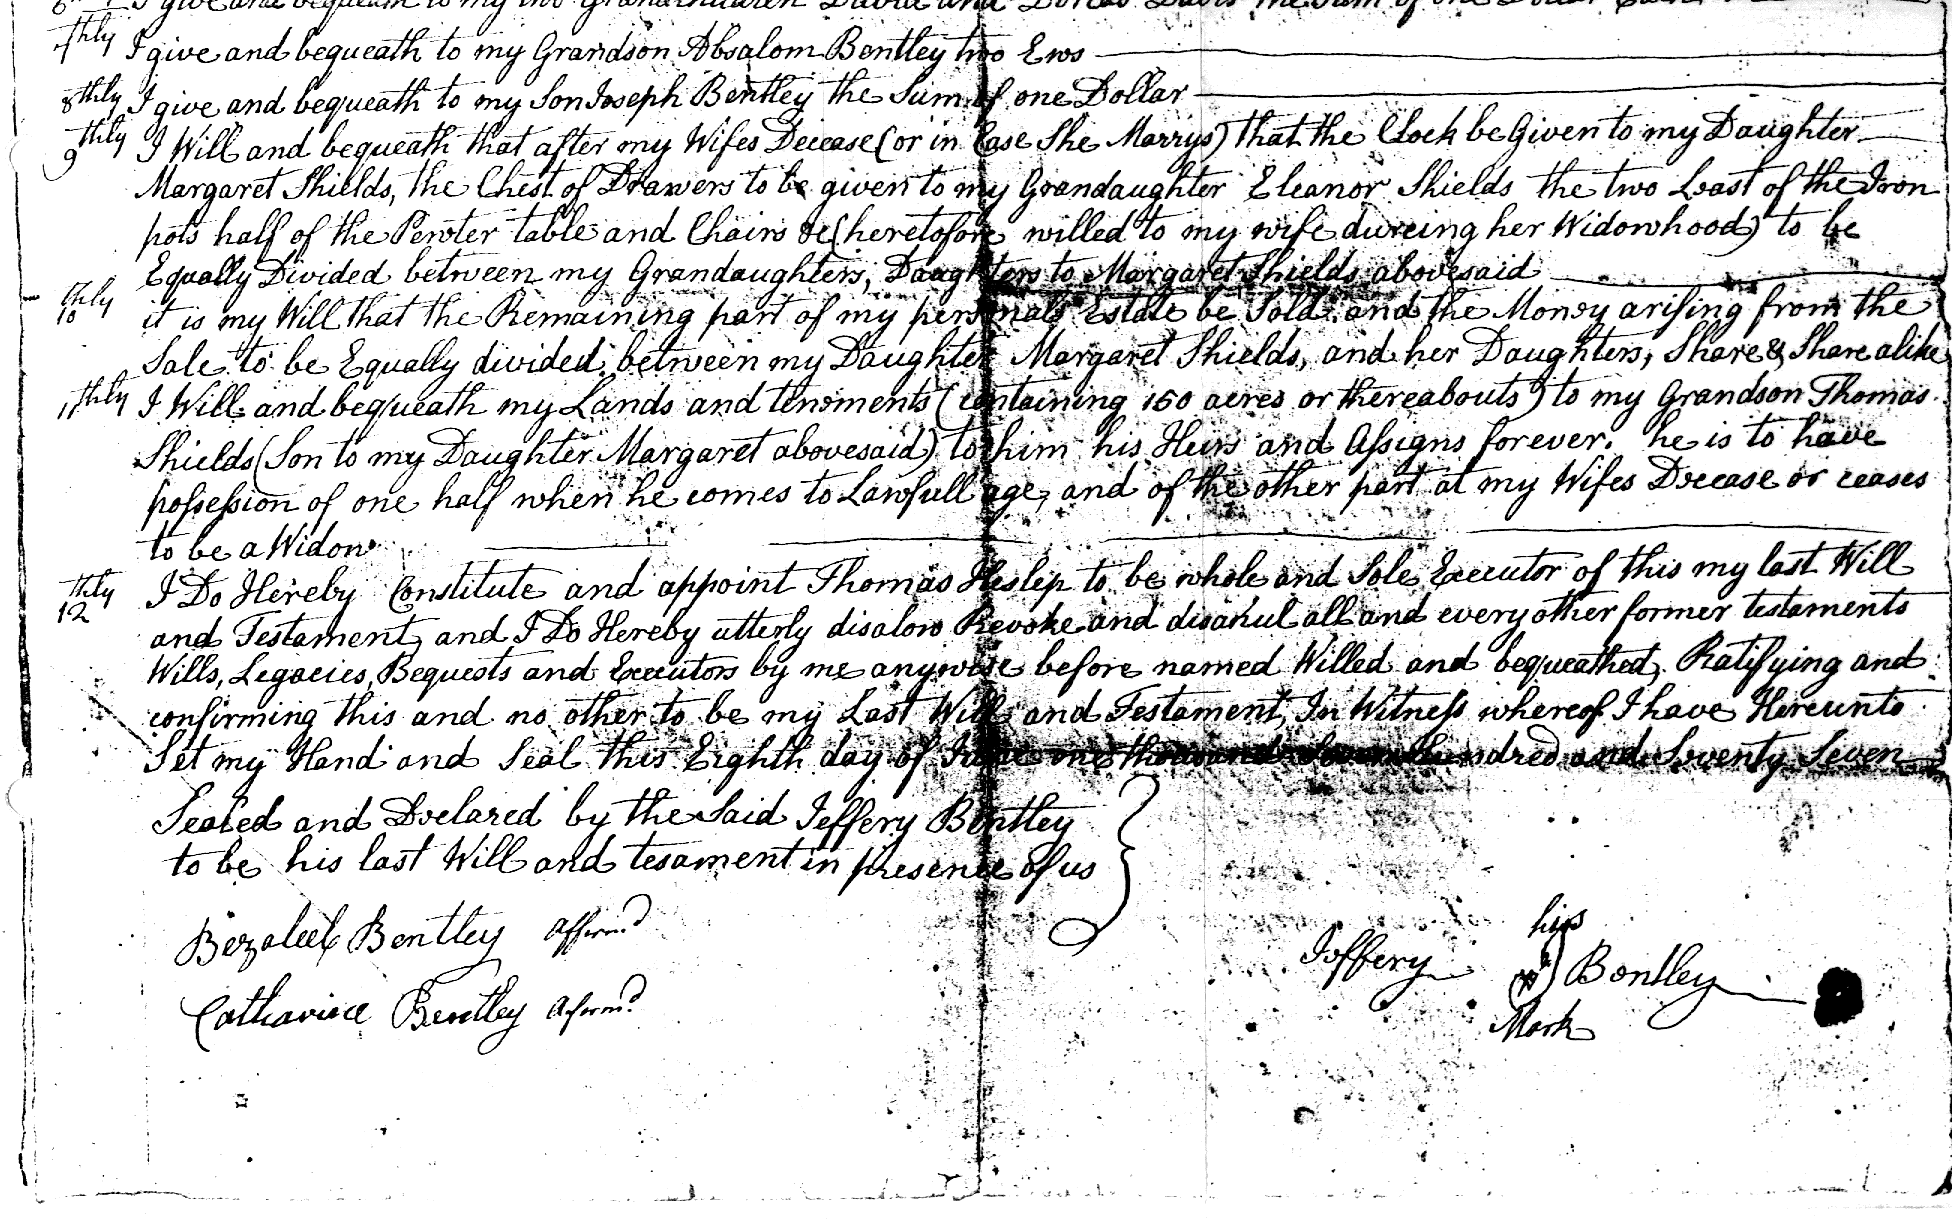 I give and bequeath to my two Grandchildren David and Dorcas Davis the Sum of one Dollar Each
7thly I give and bequeath to my Grandson Absalom Bentley two Ews
8thly I give and bequeath to my Son Joseph Bentley the Sum of one Dollar
9thly I Will and bequeath that after my Wifes Decease (or in Case She Marrys) that the Clock be Given to my Daughter
Margaret Shields, the Chest of Drawers to be given to my Grandaughter Eleanor Shields the two Least of the Iron
pots half of the Pewter table and Chairs &c (heretofore willed to my wife dureing her Widowhood) to be
Equally Divided between my Grandaughters, Daughters to Margaret Shields abovesaid
10thly it is my Will that the Remaining part of my personals Estate be Sold and the Money arising from the
Sale to be Equally divided between my Daughter Margaret Shields, and her Daughters, Share & Share alike
11thly I Will and bequeath my Lands and tenoments (containing 150 acres or thereabouts) to my Grandson Thomas
Shields (Son to my Daughter Margaret abovesaid) to him his Heirs and Assigns forever. he is to have
possession of one half when he comes to Lawfull age, and of the other part at my Wifes Decease or ceases
to be a Widow
12thly I Do Hereby Constitute and appoint Thomas Heslep to be whole and Sole Executor of this my last Will
and Testament, and I Do Hereby utterly disalow Revoke and disanul all and every other former testaments
Wills, Legacies, Bequests and Executors by me anywise before named Willed and bequeathed, Ratifying and
confirming this and no other to be my Last Will and Testament, In Witness whereof I have Hereunto
Set my Hand and Seal this Eighth day of June one thousand Seven Hundred and Seventy Seven
Sealed and Declared by the Said Jeffery Bentley
to be his last Will and tesament in presence of us
Bezaleel Bentley affirmd
his
Jeffery Bentley
Catharine Bentley afirmd
Mark